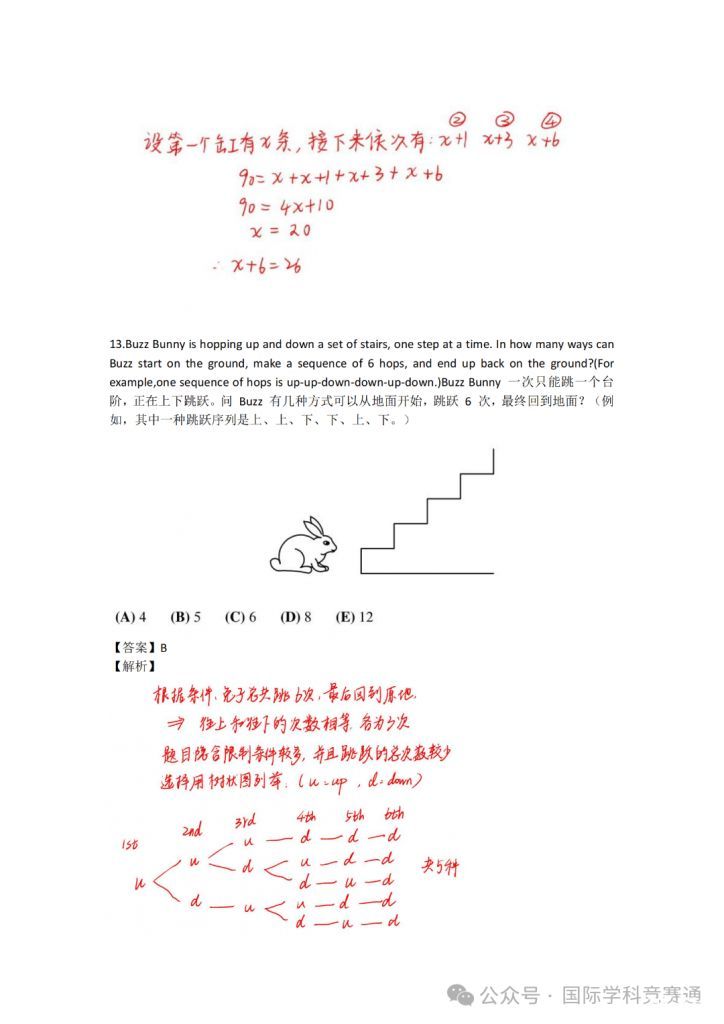 ② ③ ④
设第一个缸有x条，接下来依次有：x+1 x+3 x+6
90=x+x+1+x+3+x+6
90=4x+10
x=20
∴ x+6=26
13.Buzz Bunny is hopping up and down a set of stairs, one step at a time. In how many ways can
Buzz start on the ground, make a sequence of 6 hops, and end up back on the ground?(For
example,one sequence of hops is up-up-down-down-up-down.)Buzz Bunny 一次只能跳一个台
阶，正在上下跳跃。问 Buzz 有几种方式可以从地面开始，跳跃 6 次，最终回到地面？（例
如，其中一种跳跃序列是上、上、下、下、上、下。）
(A) 4 (B) 5 (C) 6 (D) 8 (E) 12
【答案】B
【解析】
根据条件，兔子总共跳6次，最后回到原地.
⇒ 往上和往下的次数相等，各为3次
题目结合限制条件较多，并且跳跃的总次数较少
选择用树状图列举.（u=up，d=down）
1st 2nd 3rd 4th 5th 6th
u — d — d — d
u d u — d — d
u d — u — d 共5种
d — u u — d — d
d — u — d
公众号·国际学科竞赛通